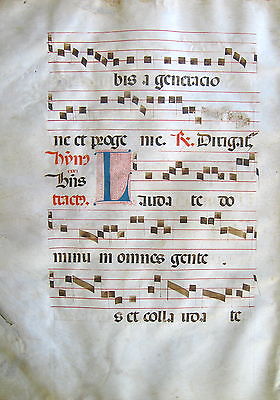 bis a generacio
ne et proge nie. R. Dirigat᷒
tract᷒. Lauda te do
minu m omnes gente
s et colla uda te